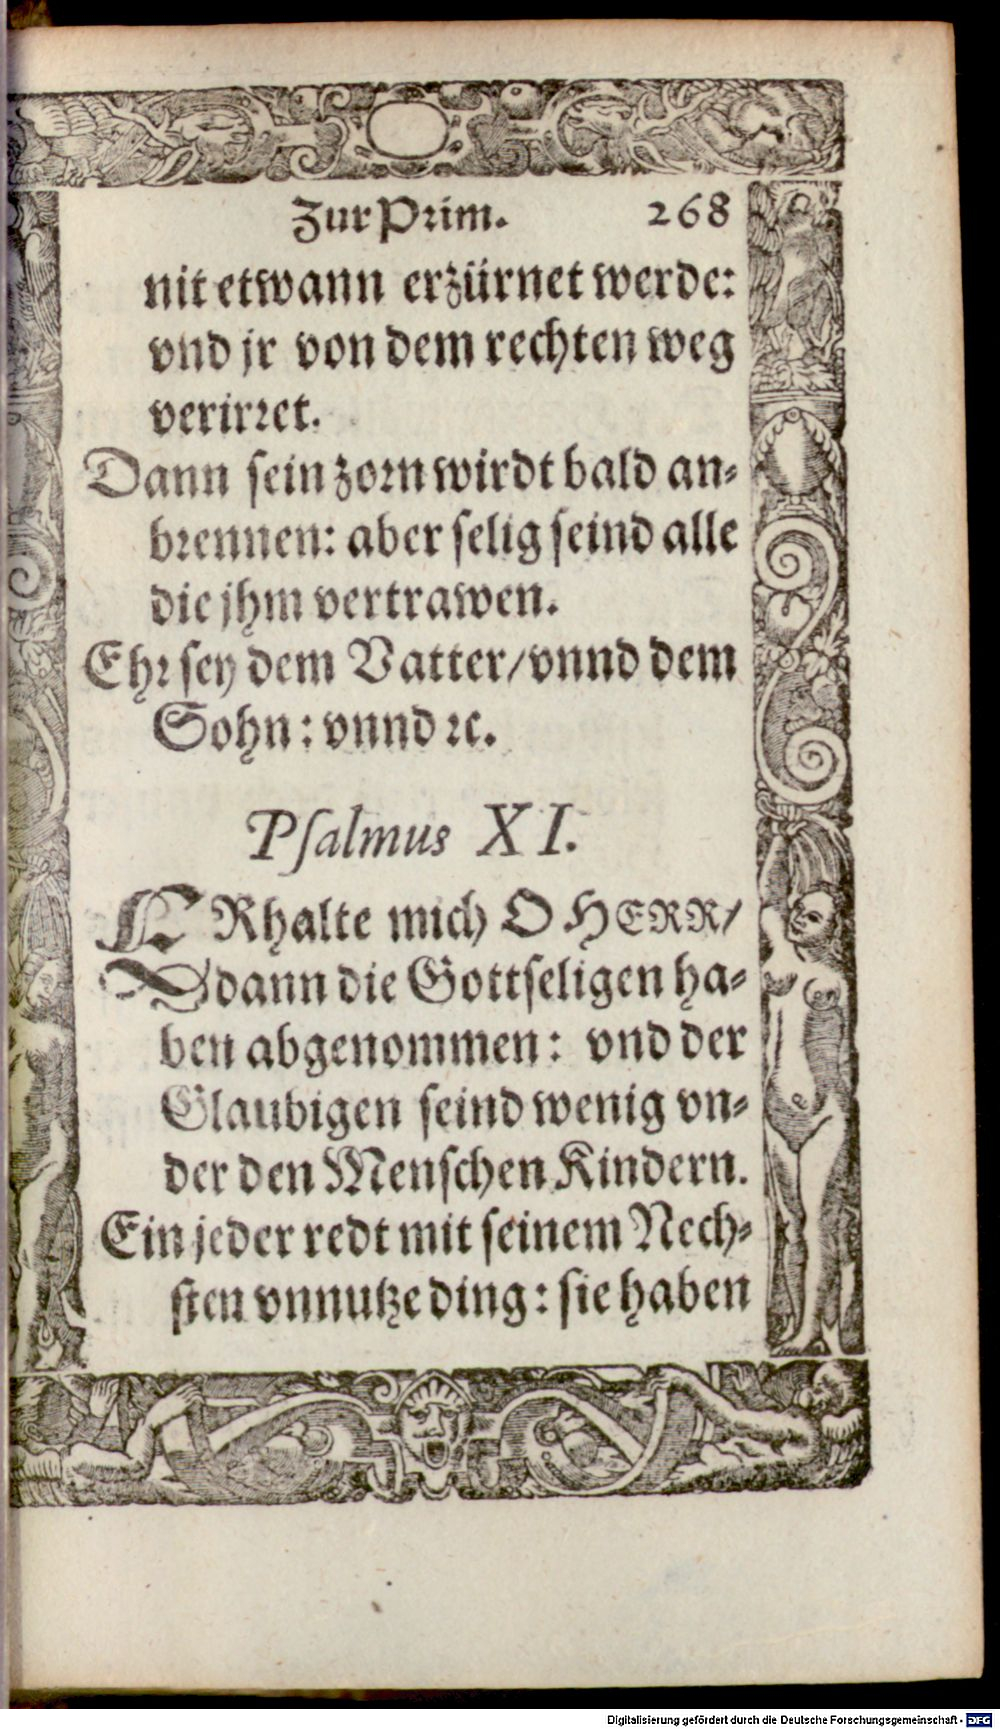 Zur Prim. 268
nit etwann erzürnet werde:
vnd jr von dem rechten weg
verirret.
Dann sein zorn wirdt bald an-
brennen: aber selig seind alle
die jhm vertrawen.
Ehr sey dem Vatter/vnnd dem
Sohn: vnnd ꝛc.
Psalmus XI.
ERhalte mich O HERR/
dann die Gottseligen ha-
ben abgenommen: vnd der
Glaubigen seind wenig vn-
der den Menschen Kindern.
Ein jeder redt mit seinem Nech-
sten vnnutze ding: sie haben
Digitalisierung gefördert durch die Deutsche Forschungsgemeinschaft - DFG